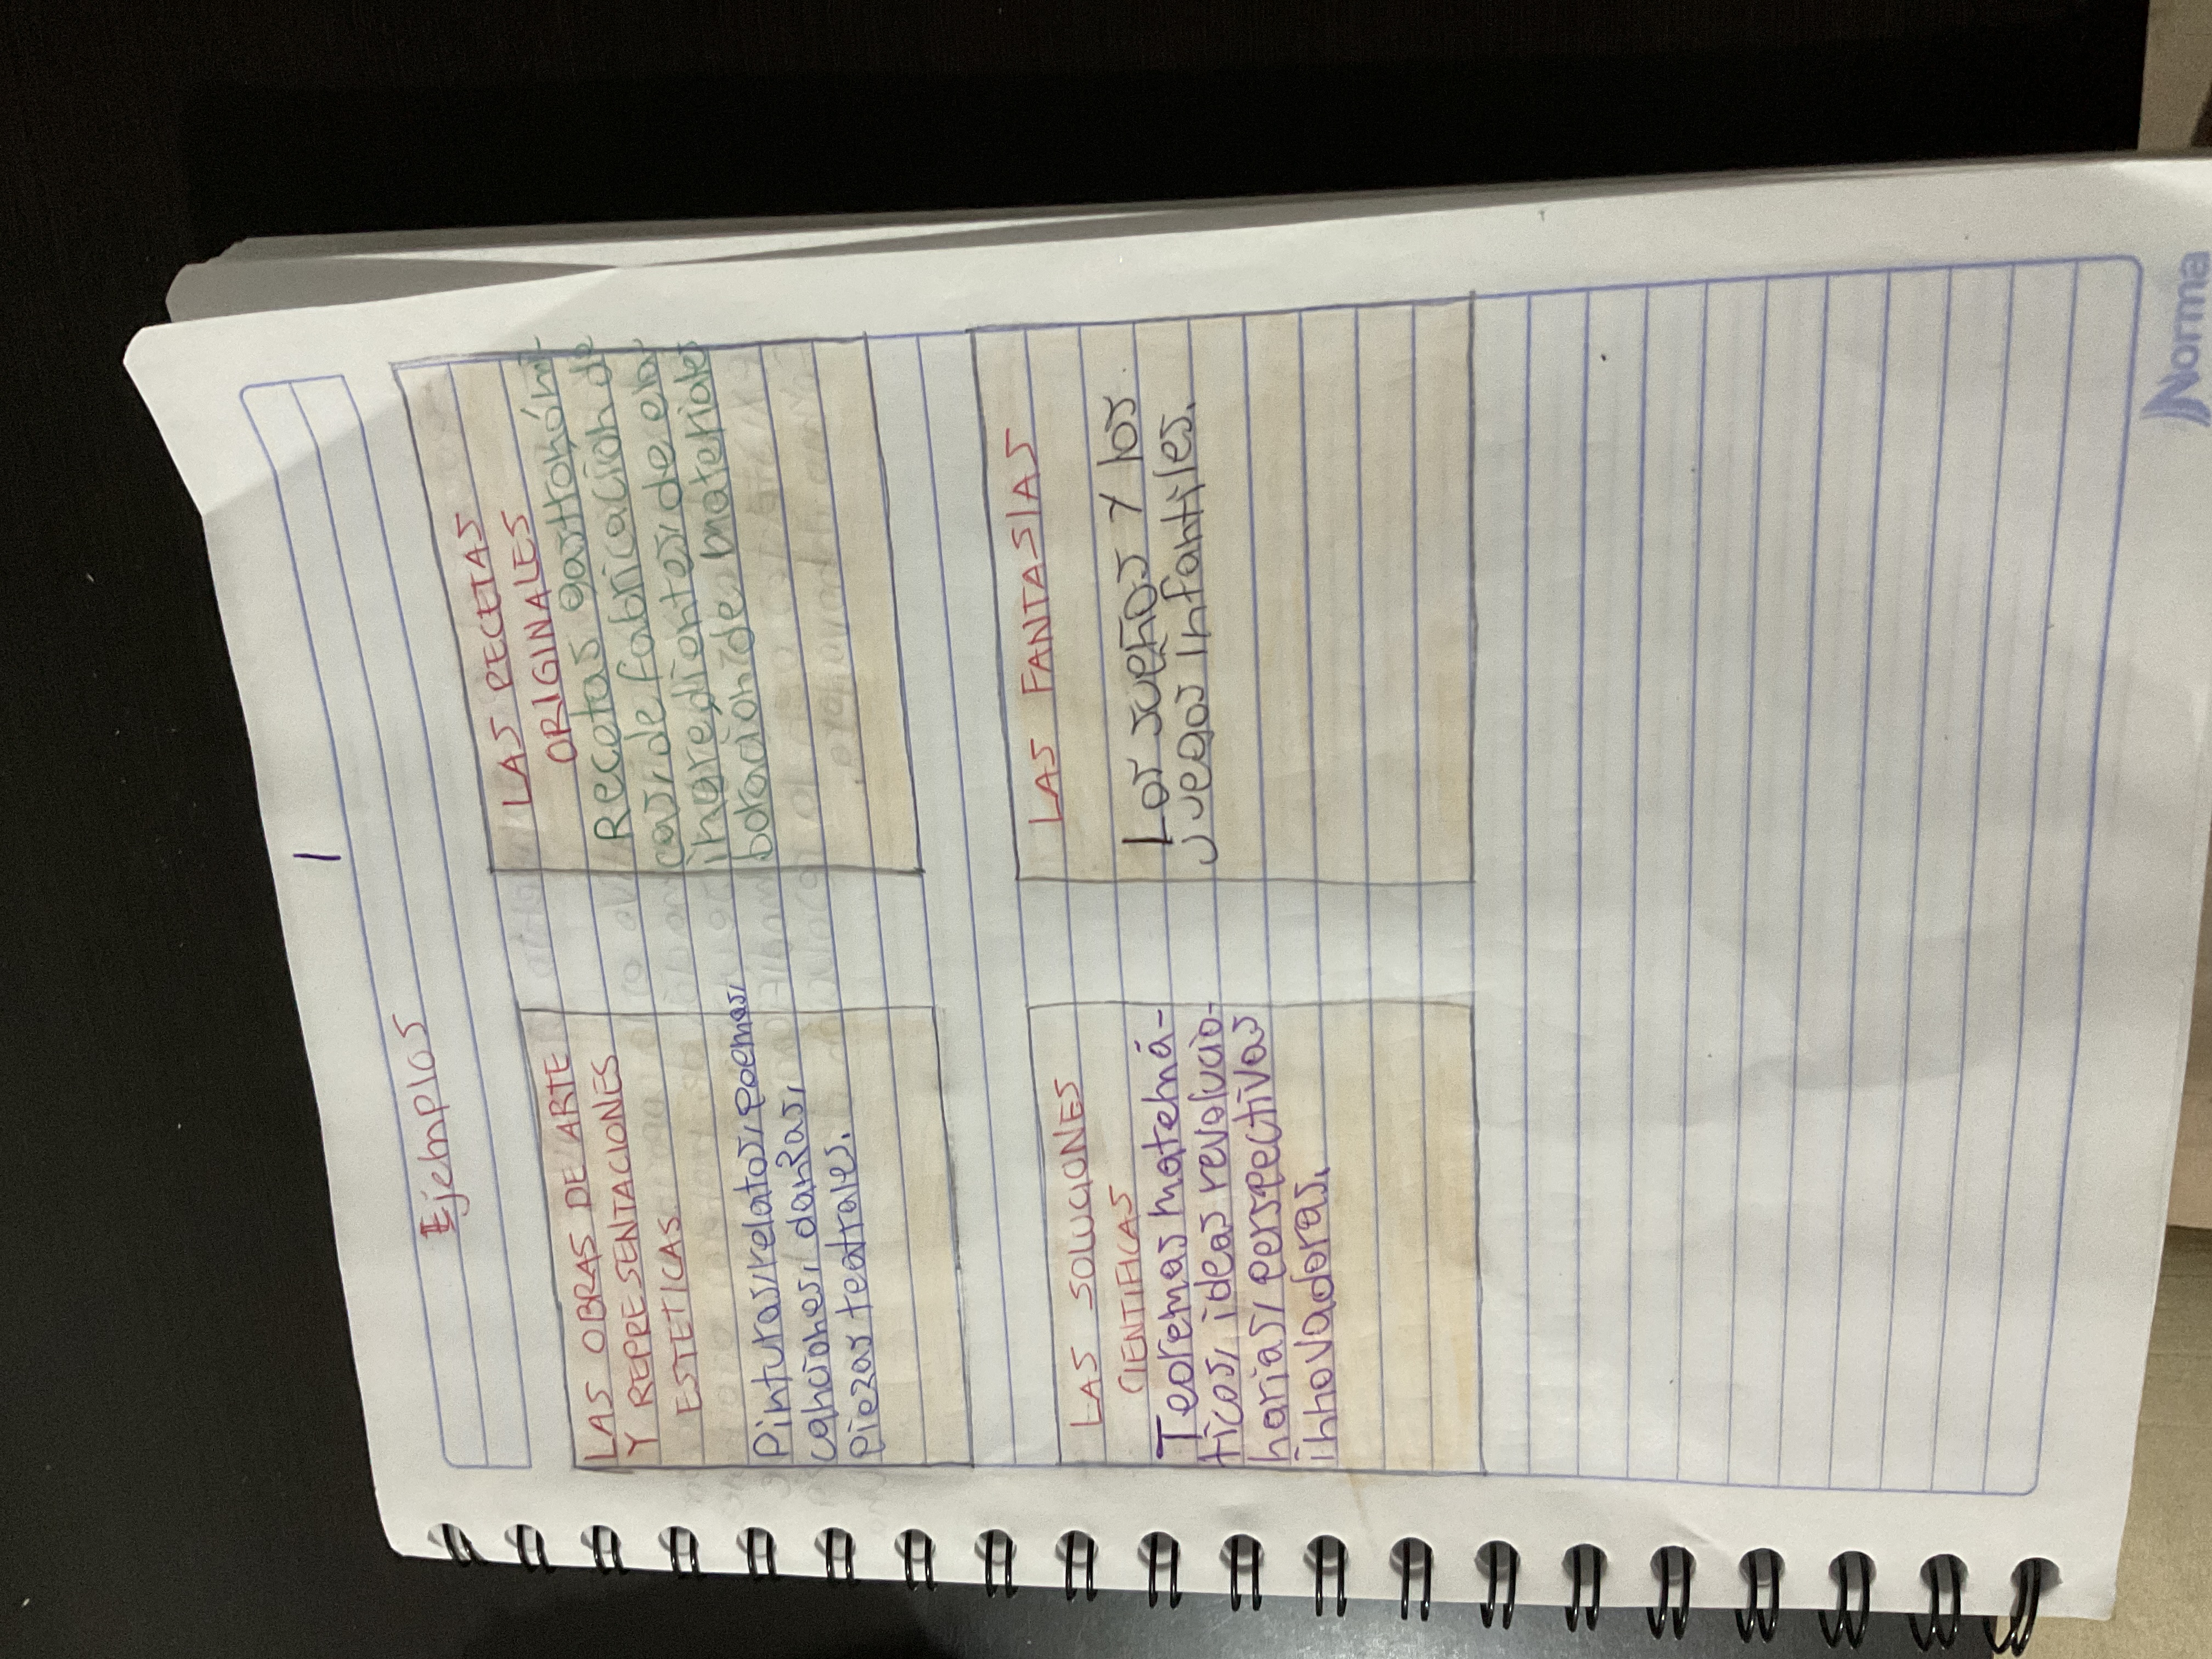 Ejemplos
LAS OBRAS DE ARTE
Y REPRESENTACIONES
ESTETICAS
Pinturas, relatos, poemas,
canciones, danzas,
piezas teatrales.
LAS RECETAS
ORIGINALES
Recetas gastronómi-
cas, de fabricación de
ingredientes, de ela-
boración de materiales
LAS SOLUCIONES
CIENTIFICAS
Teoremas matemá-
ticos, ideas revolucio-
narias, perspectivas
innovadoras.
LAS FANTASIAS
Los sueños y los
juegos infantiles.
Norma